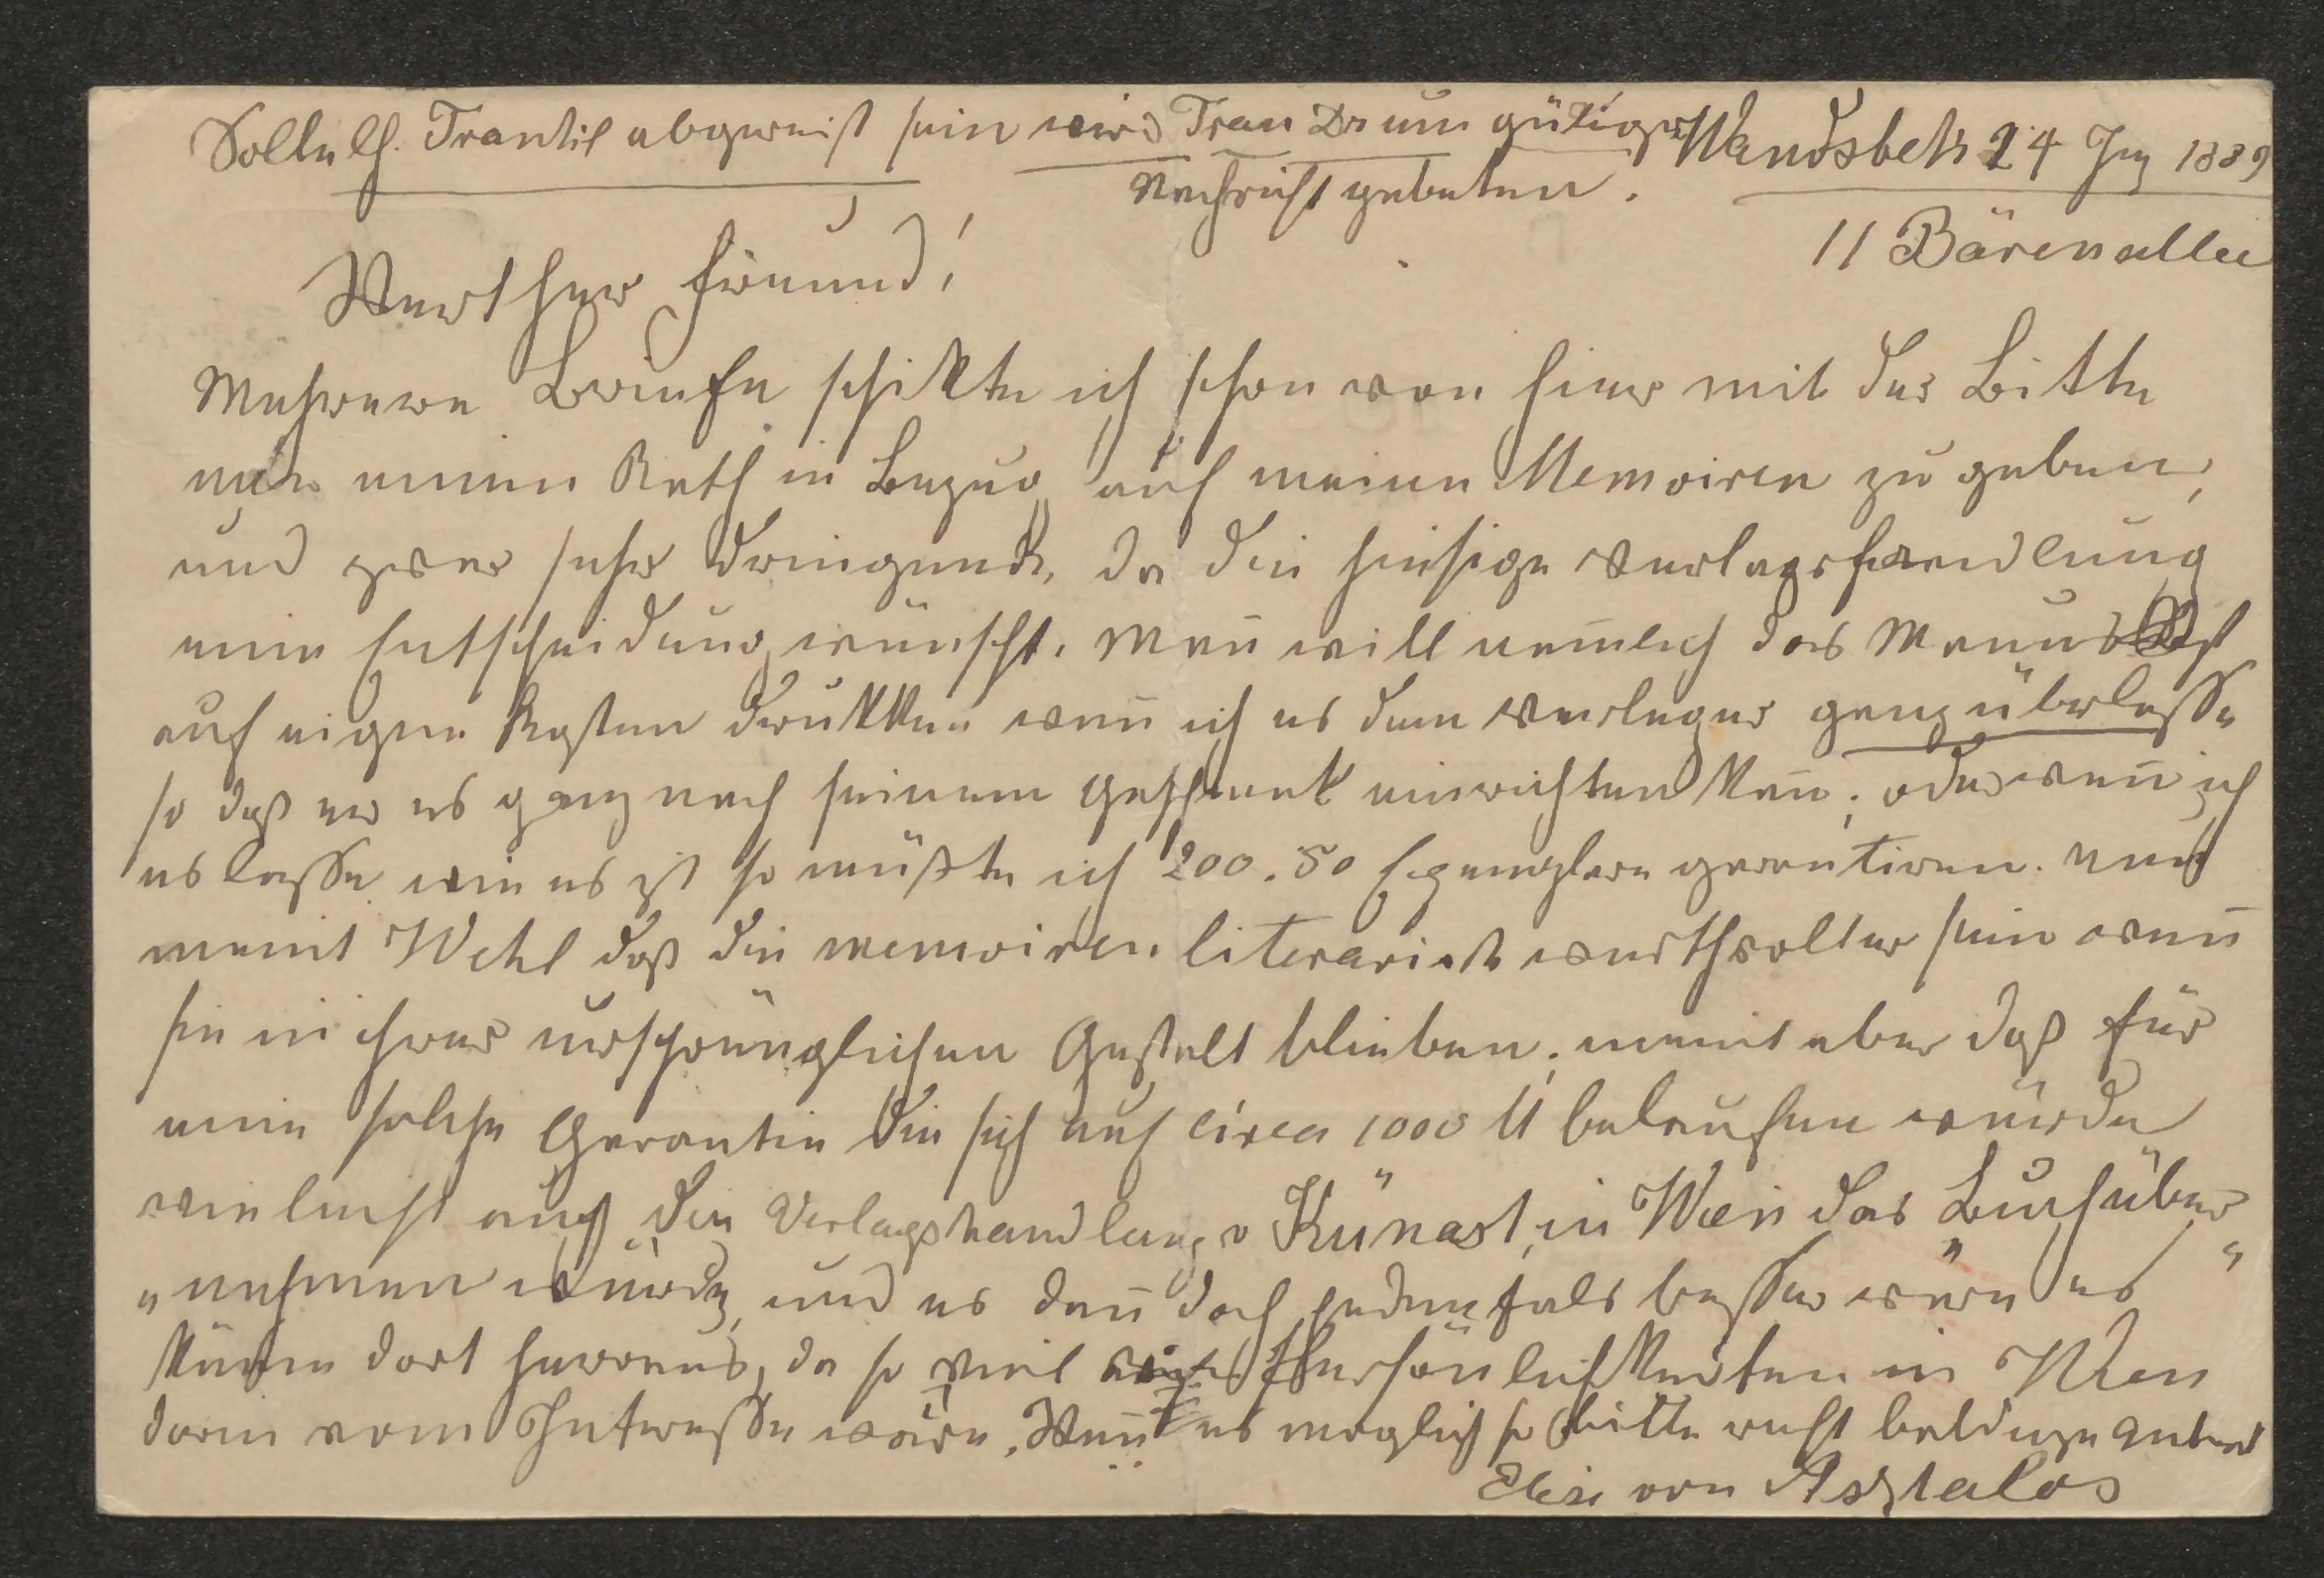 Sollte H. Trantil abgereist sein wird Frau Dr um gütige
Nachricht gebeten.
Wandsbek 24 Juy 1889
11 Bärenallee
Werther Freund!
Mehrere Briefe schikte ich schon von hier mit der Bitte
mir einen Rath in Bezug auf meine Memoiren zu geben,
und zwar sehr dringend, da die hiesige Verlagshandlung
eine Entscheidung wünscht. Man will nemlich das Manus
auf eigene Kosten drukken wen̄ ich es dem Verleger ganz überlasse
so daß er es ganz nach seinem Geschmak einrichten kan̄; oder wen̄ ich
es lasse wie es ist so müßte ich 200.50 Exemplare garantiren. Nun
meint Wehl daß die Memoiren literarisch werthvoller sein wen̄
sie in ihrer ursprünglichen Gestalt blieben; meint aber daß für
eine solche Garantie die sich auf circa 1000 M belaufen würde
vieleicht auch die Verlagshandlung v Künast, in Wien das Buch über
"nehmen würde, und es dan̄ doch jedenfals besser wäre es
käme dort heraus, da so viel Persönlichkeiten in Wien
darin vom Intresse wäre. Wen̄ es möglich so bitte recht baldige Antwort
Elise von Asztalos